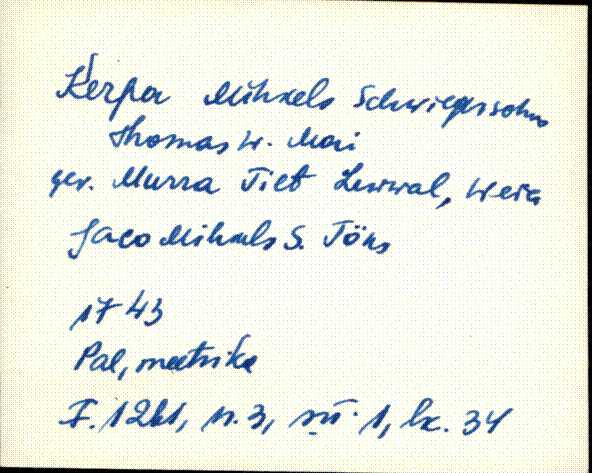 Kerpa Mihkels Schwiegssohn
Thomas W. Mai
gev. Murra Tiet Leswal, Weia
Jaco Mihkels S. Töns
1743
Pal, meetrika
F. 1261, n. 3, sü. 1, lk. 34